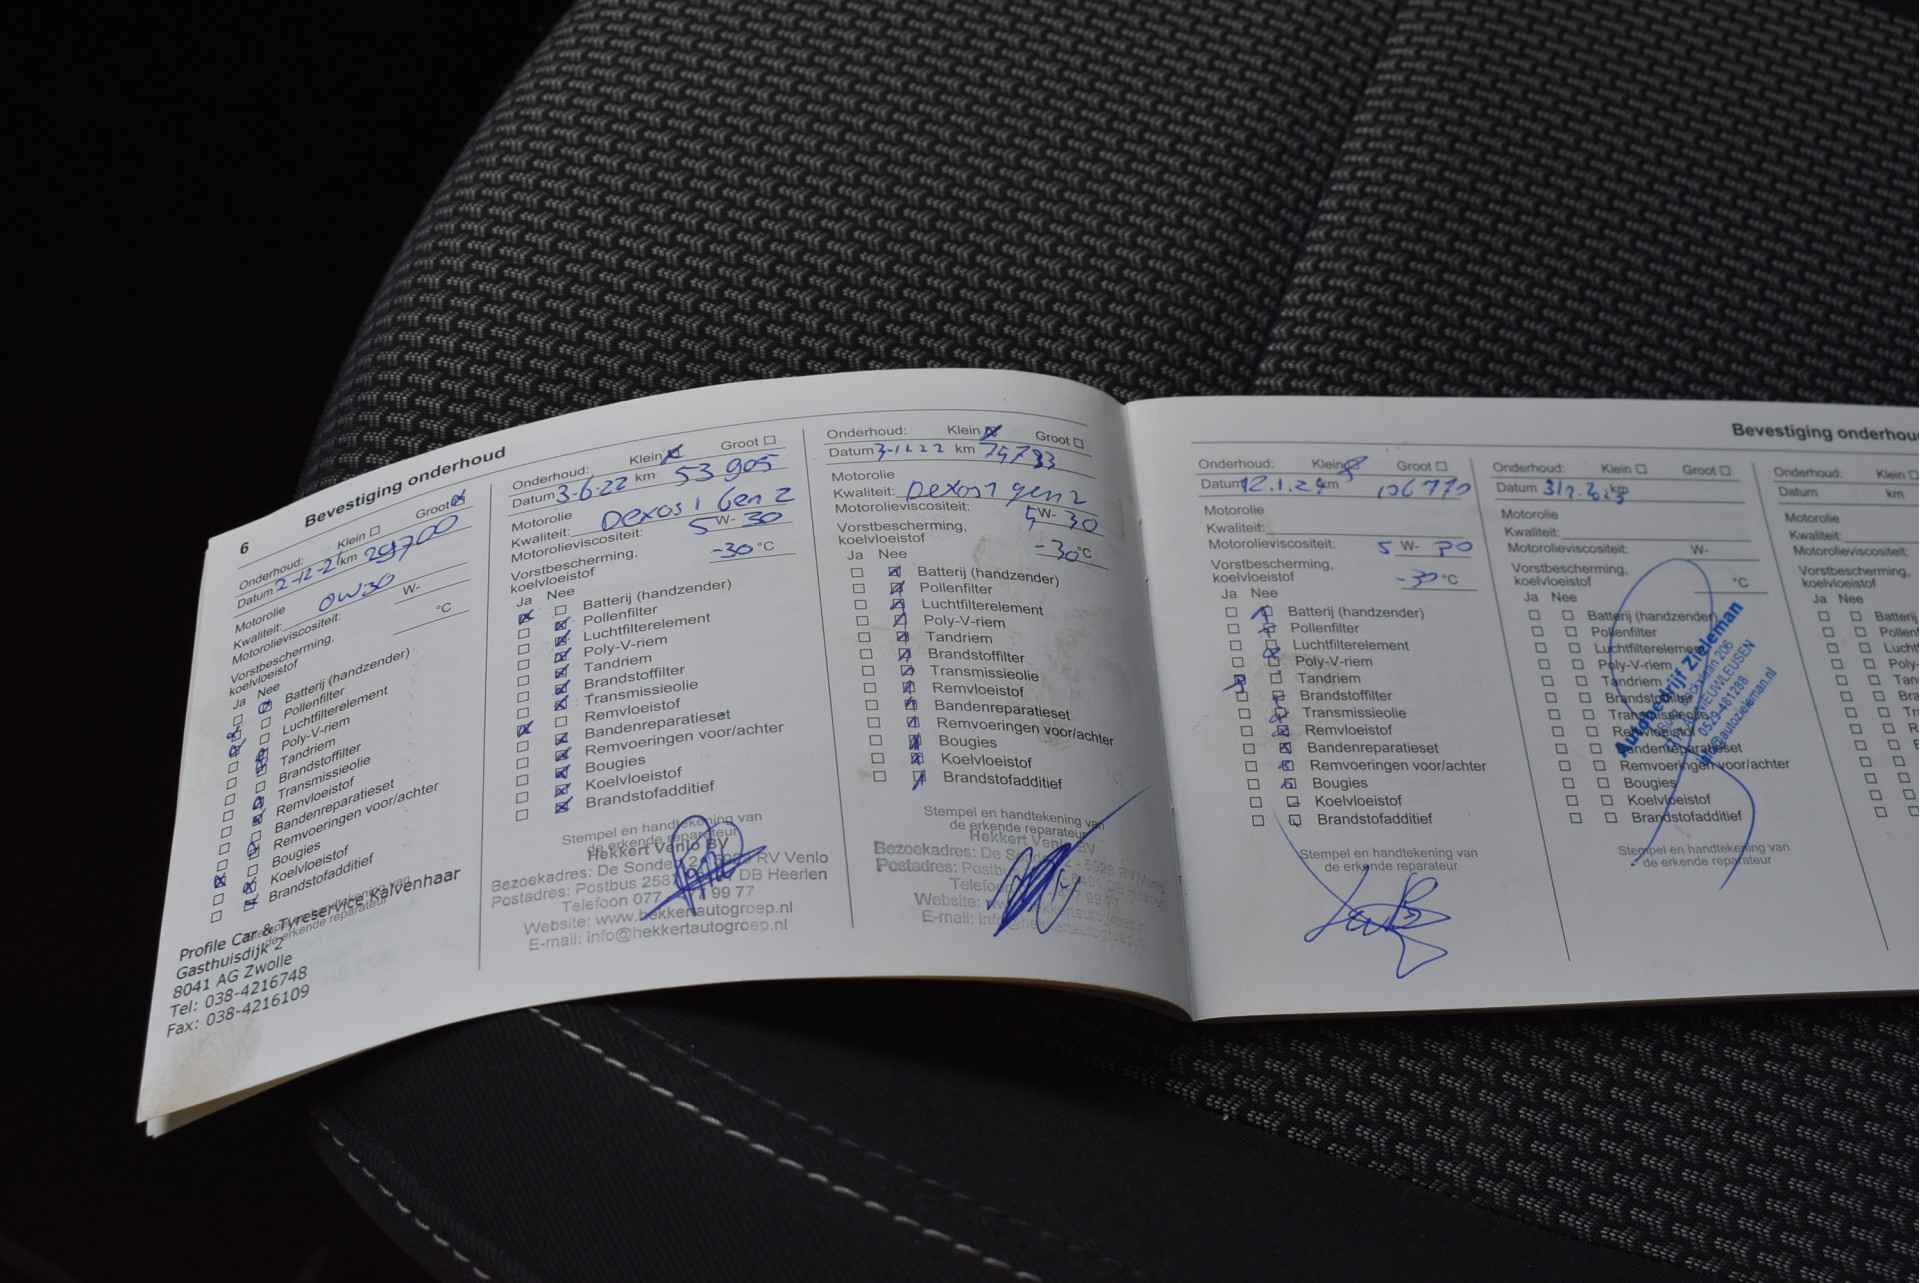 6
Bevestiging onderhoud
Onderhoud: Klein Groot
Datum 2-12-21 km 29700
Motorolie
Kwaliteit: 0W30
Motorolieviscositeit: W-
Vorstbescherming,
koelvloeistof °C
Ja Nee
Batterij (handzender)
Pollenfilter
Luchtfilterelement
Poly-V-riem
Tandriem
Brandstoffilter
Transmissieolie
Remvloeistof
Bandenreparatieset
Remvoeringen voor/achter
Bougies
Koelvloeistof
Brandstofadditief
Stempel en handtekening van
de erkende reparateur
Profile Car & Tyreservice Kalvenhaar
Gasthuisdijk 2
8041 AG Zwolle
Tel: 038-4216748
Fax: 038-4216109
Onderhoud: Klein Groot
Datum 3-6-22 km 53905
Motorolie
Kwaliteit: Dexos 1 Gen 2
Motorolieviscositeit: 5 W- 30
Vorstbescherming,
koelvloeistof -30 °C
Ja Nee
Batterij (handzender)
Pollenfilter
Luchtfilterelement
Poly-V-riem
Tandriem
Brandstoffilter
Transmissieolie
Remvloeistof
Bandenreparatieset
Remvoeringen voor/achter
Bougies
Koelvloeistof
Brandstofadditief
Stempel en handtekening van
de erkende reparateur
Hekkert Venlo BV
Bezoekadres: De Sonde RV Venlo
Postadres: Postbus DB Heerlen
Telefoon 077 99 77
Website: www.hekkertautogroep.nl
E-mail: info@hekkertautogroep.nl
Onderhoud: Klein Groot
Datum 3-11-22 km
Motorolie
Kwaliteit: Dexos 1 gen 2
Motorolieviscositeit: 5 W- 30
Vorstbescherming,
koelvloeistof -30 °C
Ja Nee
Batterij (handzender)
Pollenfilter
Luchtfilterelement
Poly-V-riem
Tandriem
Brandstoffilter
Transmissieolie
Remvloeistof
Bandenreparatieset
Remvoeringen voor/achter
Bougies
Koelvloeistof
Brandstofadditief
Stempel en handtekening van
de erkende reparateur
Hekkert Venlo BV
Bezoekadres: De
Postadres: Postbus
Telefoon
Website: www.hekkertautogroep
E-mail:
Bevestiging onderhoud
Onderhoud: Klein Groot
Datum 12.1.24 km 106770
Motorolie
Kwaliteit:
Motorolieviscositeit: 5 W-
Vorstbescherming,
koelvloeistof -30 °C
Ja Nee
Batterij (handzender)
Pollenfilter
Luchtfilterelement
Poly-V-riem
Tandriem
Brandstoffilter
Transmissieolie
Remvloeistof
Bandenreparatieset
Remvoeringen voor/achter
Bougies
Koelvloeistof
Brandstofadditief
Stempel en handtekening van
de erkende reparateur
Onderhoud: Klein Groot
Datum km
Motorolie
Kwaliteit:
Motorolieviscositeit: W-
Vorstbescherming,
koelvloeistof °C
Ja Nee
Batterij (handzender)
Pollenfilter
Luchtfilterelement
Poly-V-riem
Tandriem
Brandstoffilter
Transmissieolie
Remvloeistof
Bandenreparatieset
Remvoeringen voor/achter
Bougies
Koelvloeistof
Brandstofadditief
Autobedrijf Zieleman
206
NIEUWLEUSEN
0529-481288
@autozieleman.nl
Stempel en handtekening van
de erkende reparateur
Onderhoud: Klein
Datum km
Motorolie
Kwaliteit:
Motorolieviscositeit:
Vorstbescherming,
koelvloeistof
Ja Nee